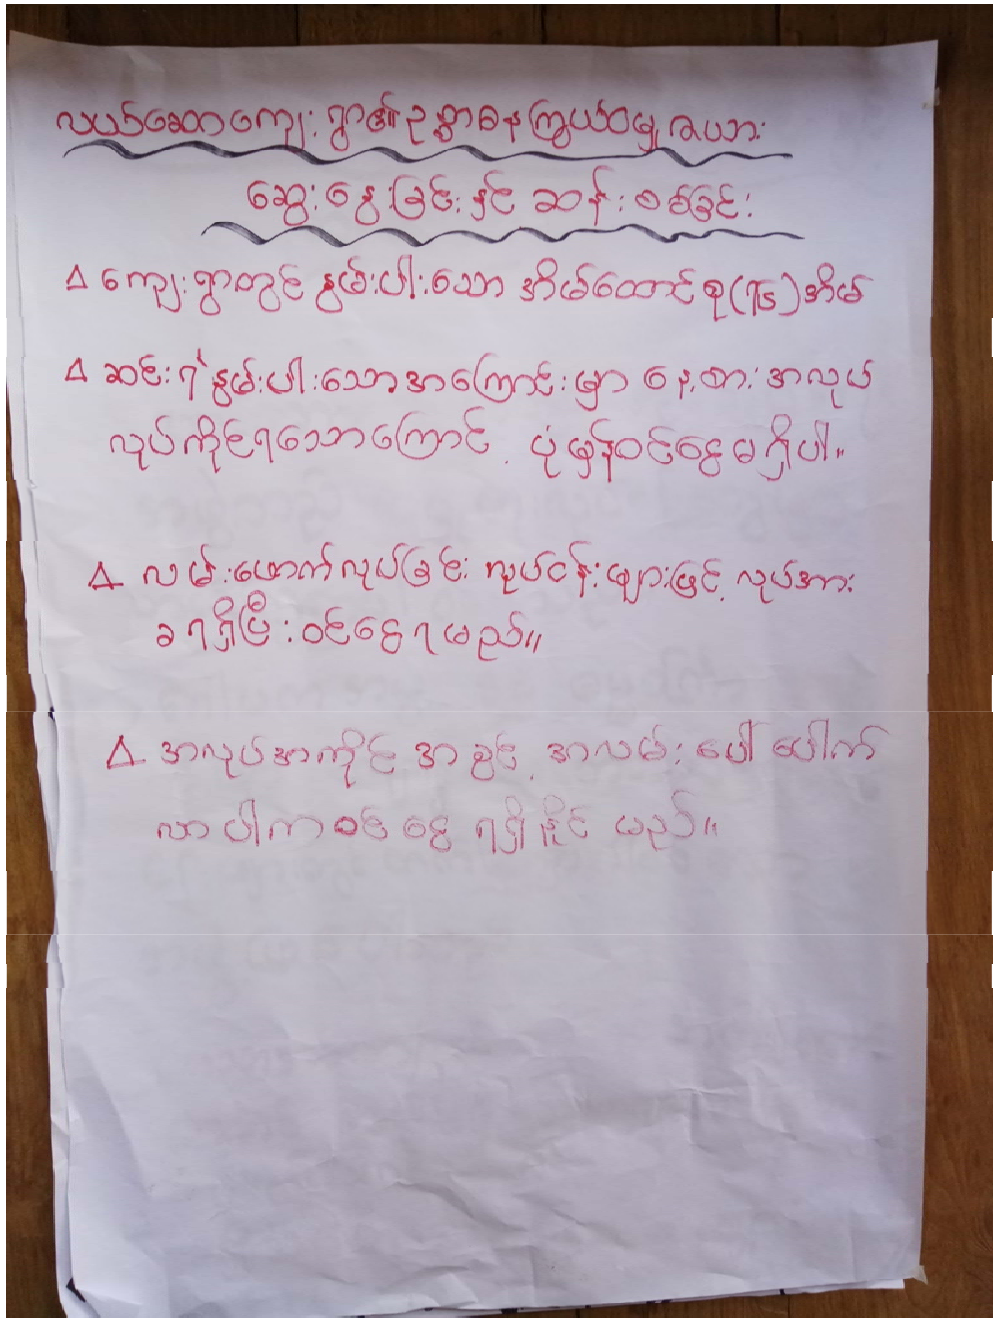 လယ်ဆောကျေးရွာ၏ဥစ္စာဓနကြွယ်ဝမှုအလား
ဆွေးနွေးခြင်းနှင့် ဆန်းစစ်ခြင်း
Δ ကျေးရွာတွင် နွမ်းပါးသော အိမ်ထောင်စု(၇၆)အိမ်
Δ ဆင်းရဲနွမ်းပါးသောအကြောင်းမှာ နေ့စားအလုပ်
လုပ်ကိုင်ရသောကြောင့် ပုံမှန်ဝင်ငွေမရှိပါ။
Δ လမ်းဖောက်လုပ်ခြင်း လုပ်ငန်းများဖြင့် လုပ်အား
ခရရှိပြီးဝင်ငွေရမည်။
Δ အလုပ်အကိုင် အခွင့်အလမ်းပေါ်ပေါက်
လာပါကဝင်ငွေ ရရှိနိုင်မည်။